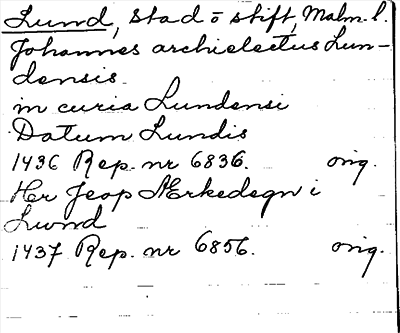 Lund, stad o stift, Malm. l.
Johannes archielectus Lun-
densis
in curia Lundensi
Datum Lundis
1436 Rep. nr 6836. orig.
Her Jeop Ærkedegn i
Lwnd
1437 Rep. nr 6856. orig.